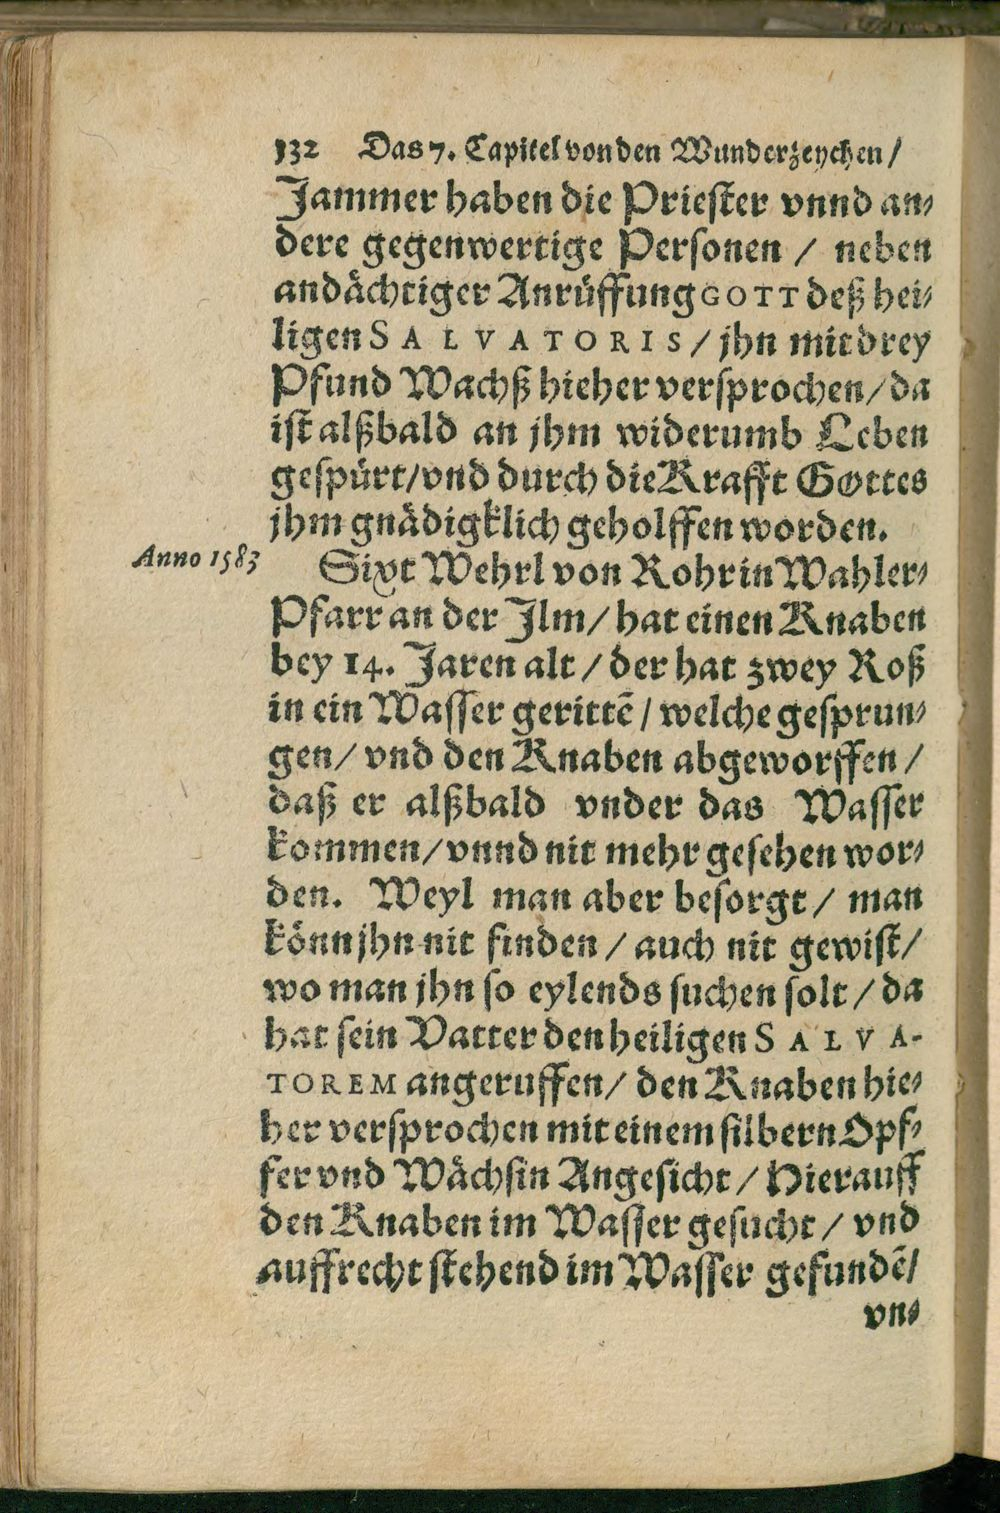 132 Das 7. Capitel von den Wunderzeychen /
Jammer haben die Priester vnnd an⸗
dere gegenwertige Personen / neben
andächtiger Anrüffung GOTT deß hei⸗
ligen SALVATORIS / jhn mit drey
Pfund Wachß hieher versprochen / da
ist alßbald an jhm widerumb Leben
gespürt / vnd durch die Krafft Gottes
jhm gnädigklich geholffen worden.
Anno 1583
Sixt Wehrl von Rohr in Wahler⸗
Pfarr an der Jlm / hat einen Knaben
bey 14. Jaren alt / der hat zwey Roß
in ein Wasser gerittē / welche gesprun⸗
gen / vnd den Knaben abgeworffen /
daß er alßbald vnder das Wasser
kommen / vnnd nit mehr gesehen wor⸗
den. Weyl man aber besorgt / man
könn jhn nit finden / auch nit gewist /
wo man jhn so eylends suchen solt / da
hat sein Vatter den heiligen SALVA-
TOREM angeruffen / den Knaben hie⸗
her versprochen mit einem silbern Opf⸗
fer vnd Wächsin Angesicht / Hierauff
den Knaben im Wasser gesucht / vnd
auffrecht stehend im Wasser gefundē /
vn⸗